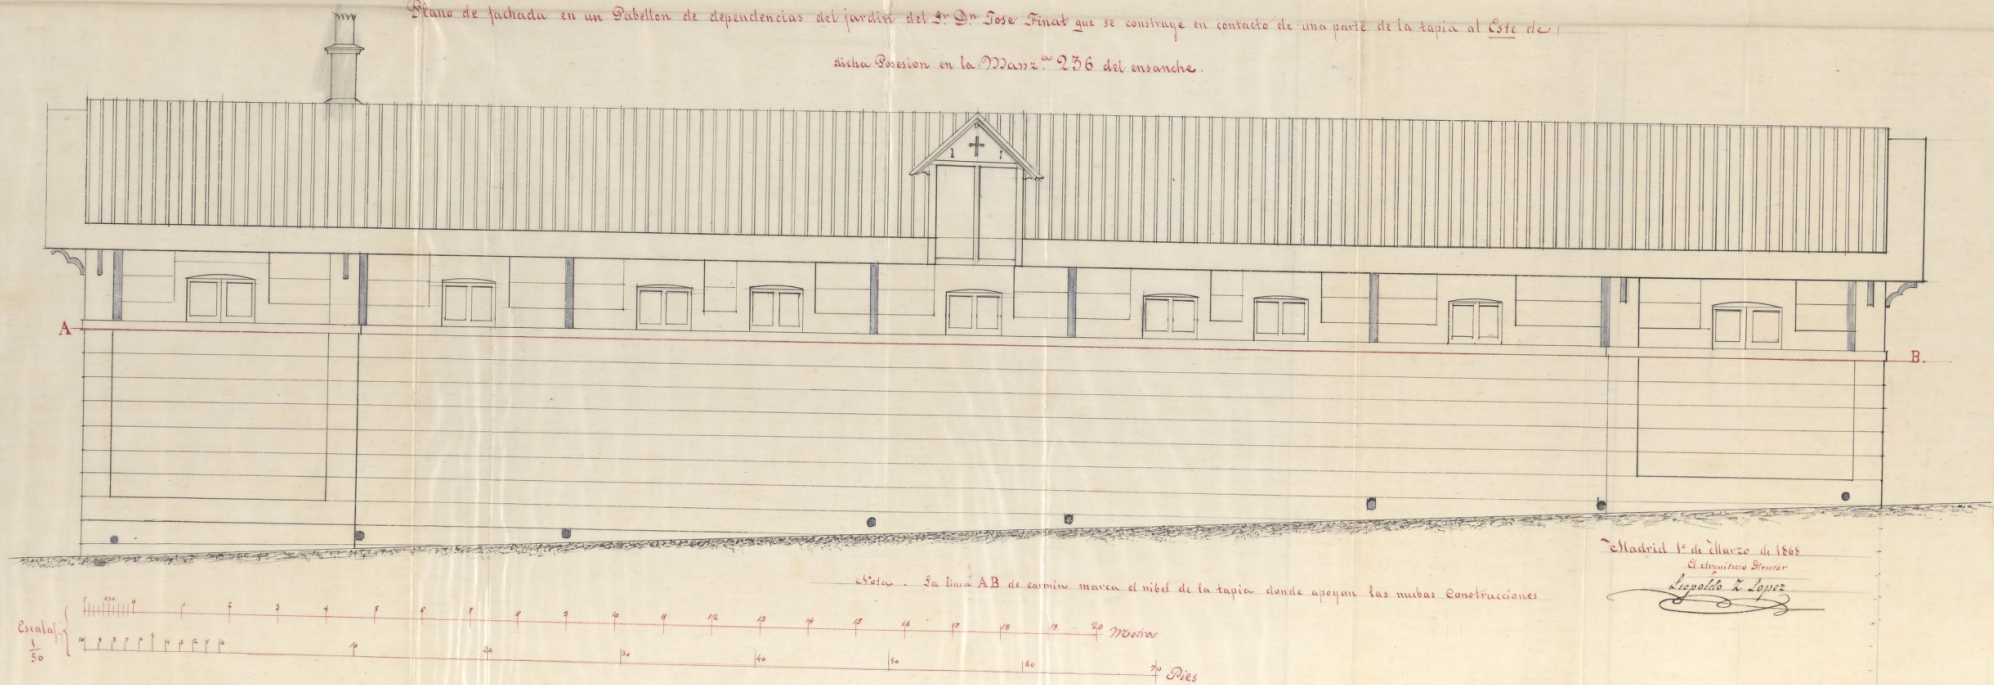 Plano de fachada en un Pabellon de dependencias del jardin del Sr. Dn. Jose Finat que se construye en contacto de una parte de la tapia al Este de
dicha Posesion en la Manz.na 236 del ensanche.
A
B.
Madrid 1º de Marzo de 1868
El Arquitecto Director
Leopoldo Z Lopez
Nota. La linea AB de carmin marca el nibel de la tapia donde apoyan las nuebas Construcciones
Escala 1/50
0 1 2 3 4 5 6 7 8 9 10 11 12 13 14 15 16 17 18 19 20 Metros
10 20 30 40 50 60 70 Pies